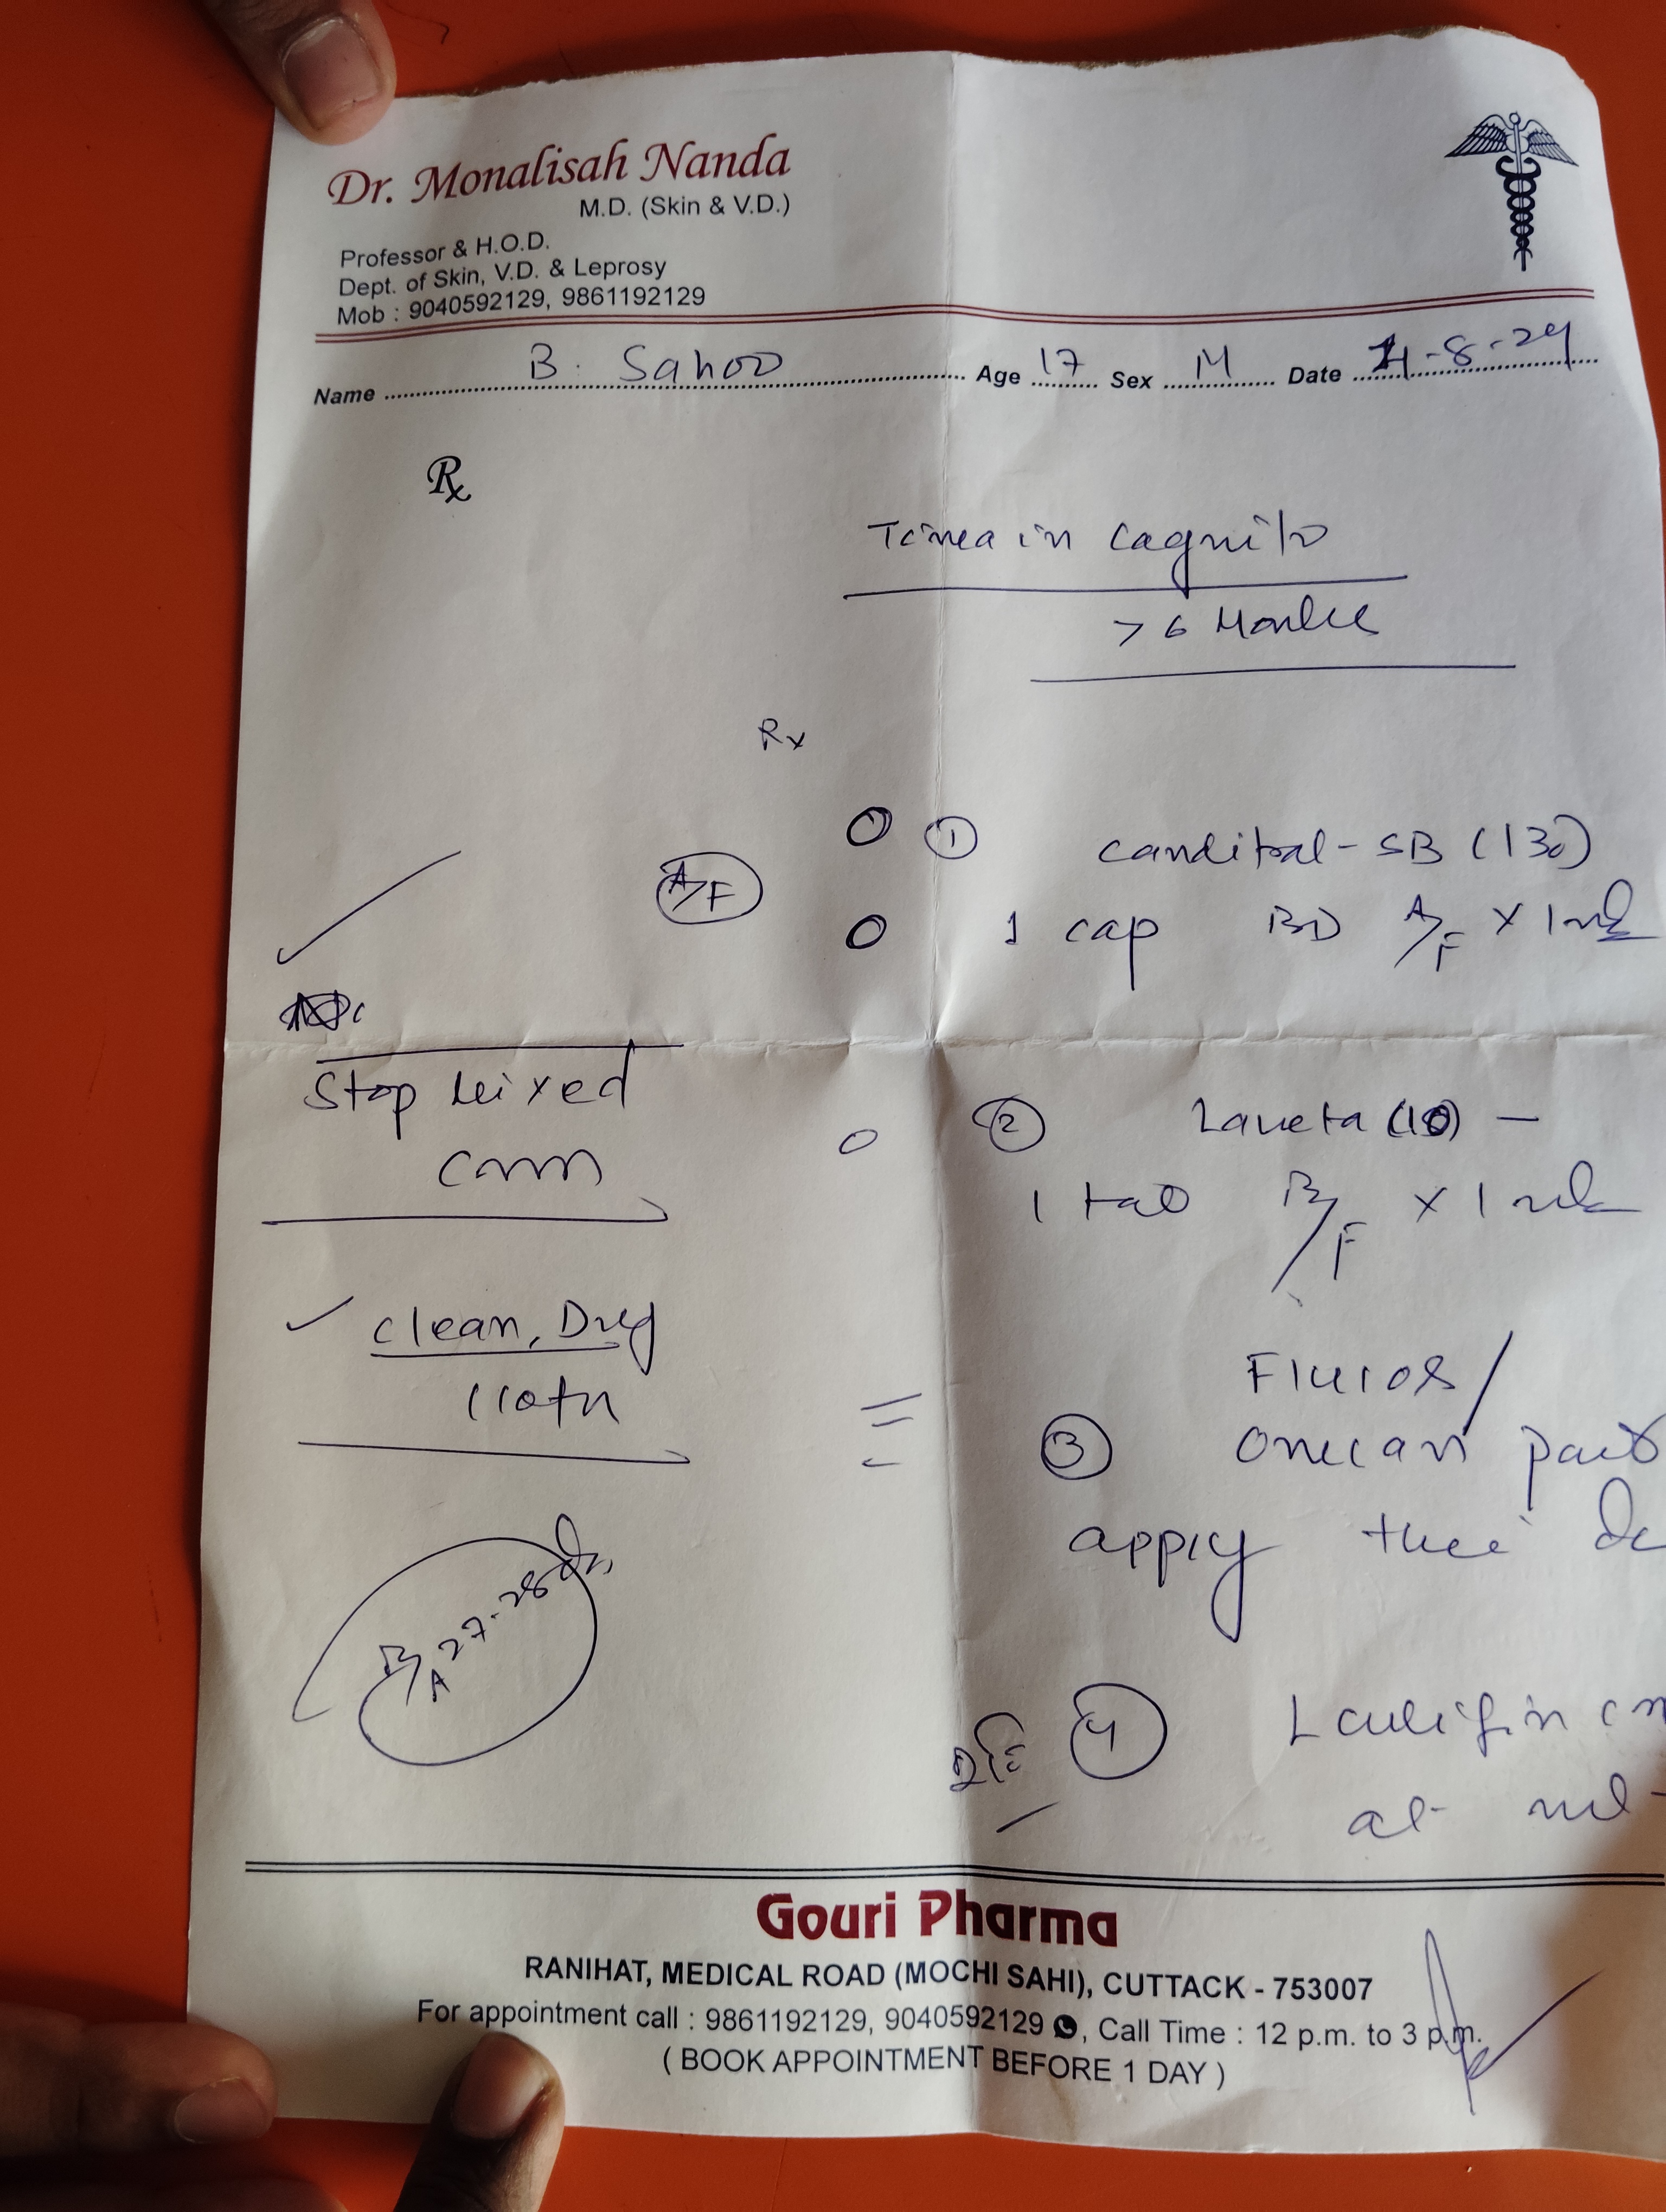 Dr. Monalisah Nanda
M.D. (Skin & V.D.)
Professor & H.O.D.
Dept. of Skin, V.D. & Leprosy
Mob : 9040592129, 9861192129
Name B. Sahoo Age 17 Sex M Date -8-24
Rx
Tinea in cagnito
> 6 Months
Rx
1 canditral-SB (130)
A/F
1 cap BD A/F x 1 wk
Stop Mixed
crm
2 (10) —
1 tab B/F x 1 wk
clean, Dry
cloth
3
apply
B/A 27-28
4 cm
at
Gouri Pharma
RANIHAT, MEDICAL ROAD (MOCHI SAHI), CUTTACK - 753007
For appointment call : 9861192129, 9040592129, Call Time : 12 p.m. to 3 p.m.
( BOOK APPOINTMENT BEFORE 1 DAY )